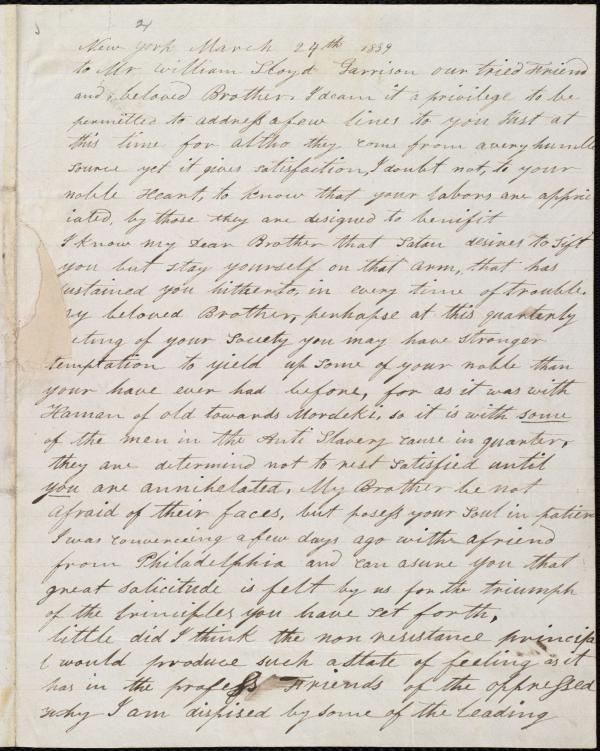 2
New York March 24th 1839
to Mr. William Lloyd Garrison our tried Friend
and beloved Brother. I deam it a privilege to be
permitted to address a few lines to you Just at
this time for altho they come from a very humble
source yet it gives satisfaction, I doubt not, to your
noble Heart, to know that your labors are apprici
iated, by those they are designed to benifit
I know my Dear Brother that Satan desires to Sift
you but stay yourself on that arm, that has
ustained you hitherto, in every time of trouble.
y beloved Brother, perhapse at this quarterly
eting of your Society you may have stronger
temptation to yield up some of your noble than
your have ever had before, for as it was with
Haman of old towards Mordeki, so it is with some
of the men in the Anti Slavery cause in quarter,
they are determind not to rest satisfied until
you are annihelated. My Brother be not
afraid of their faces, but posess your Soul in patien
I was converceing a few days ago withe a friend
from Philadelphia and can asure you that
great solicitude is felt by us for the triumph
of the principles you have set forth,
little did I think the non resistance princip
l would produce such a state of feeling as it
has in the profess Friends of the oppressed
why I am dispised by some of the leading